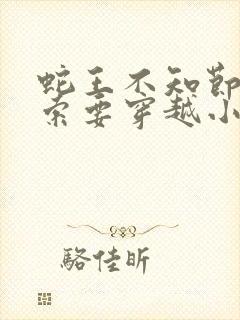 蛇王不知節
索要穿越小
駱佳昕